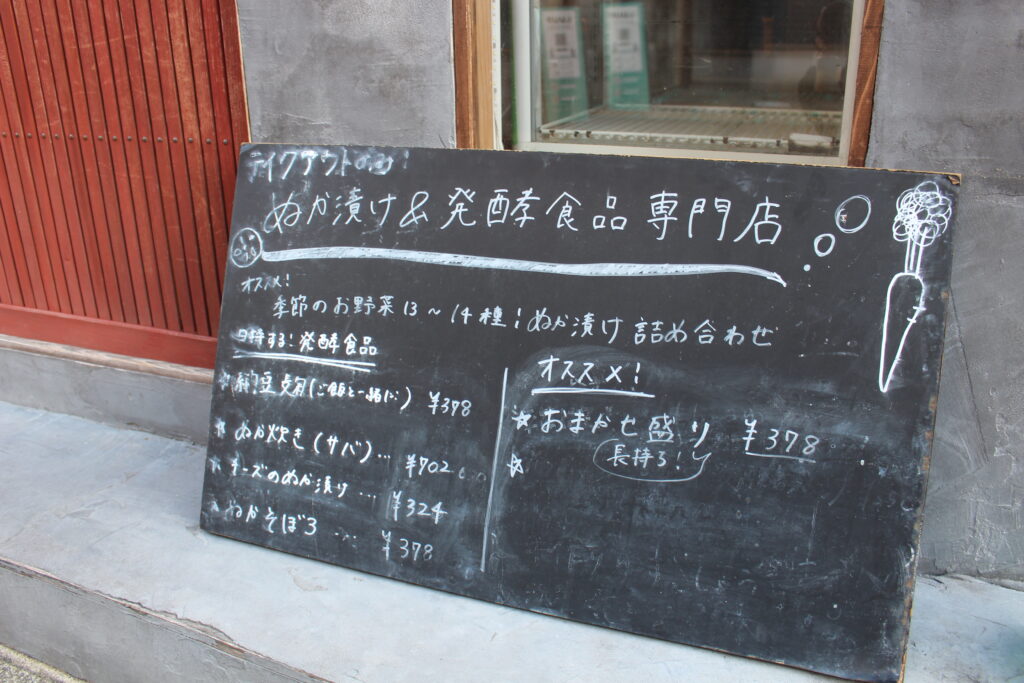 テイクアウトのみ!
ぬか漬け&発酵食品専門店
オススメ!
季節のお野菜13～14種!ぬか漬け詰め合わせ
日持する!発酵食品
納豆麹(ご飯と一緒に) ¥378
ぬか炊き(サバ)… ¥702
チーズのぬか漬け… ¥324
ぬかそぼろ… ¥378
オススメ!
☆おまかせ盛り ¥378
長持ち!
☆